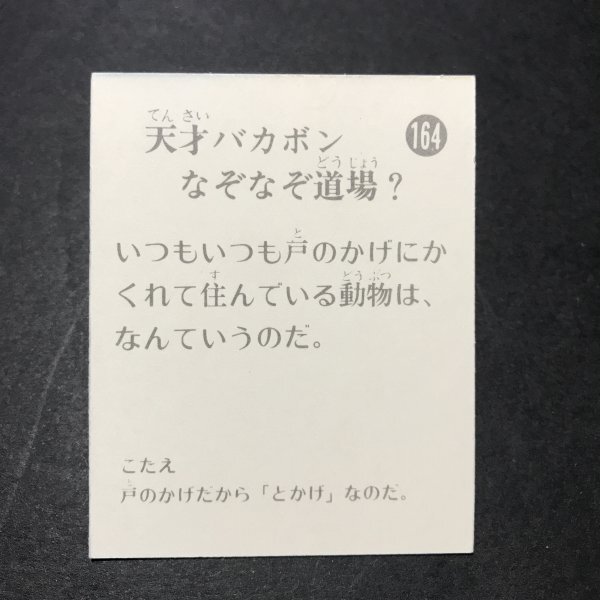 てんさい
天才バカボン
164
どうじょう
なぞなぞ道場?
と
いつもいつも戸のかげにか
す どうぶつ
くれて住んでいる動物は、
なんていうのだ。
こたえ
と
戸のかげだから「とかげ」なのだ。